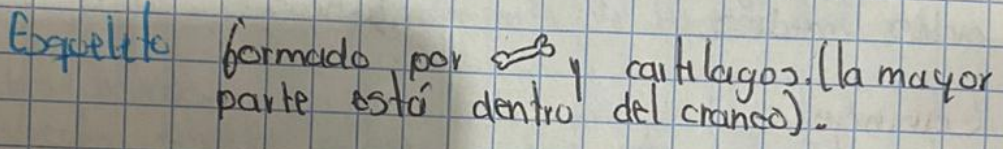 Esquelto formado por y cartílagos. (la mayor
parte está dentro del craneo).